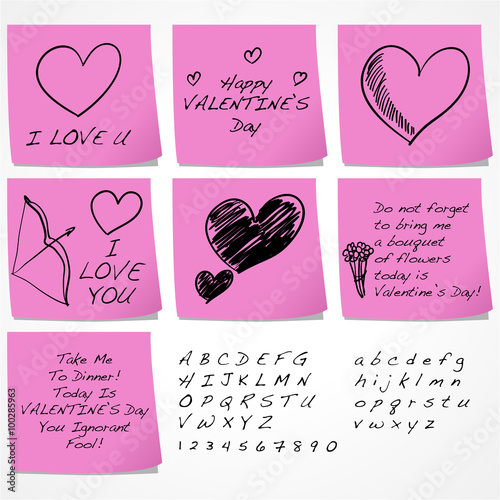 I LOVE U
Happy
VALENTINE`S
Day
I
LOVE
YOU
Do not forget
to bring me
a bouquet
of flowers
today is
Valentine`s Day!
Take Me
To Dinner!
Today Is
VALENTINE`S Day
You Ignorant
Fool!
A B C D E F G
H I J K L M N
O P Q R S T U
V W X Y Z
1 2 3 4 5 6 7 8 9 0
a b c d e f g
h i j k l m n
o p q r s t u
v w x y z
Adobe Stock | 100285963